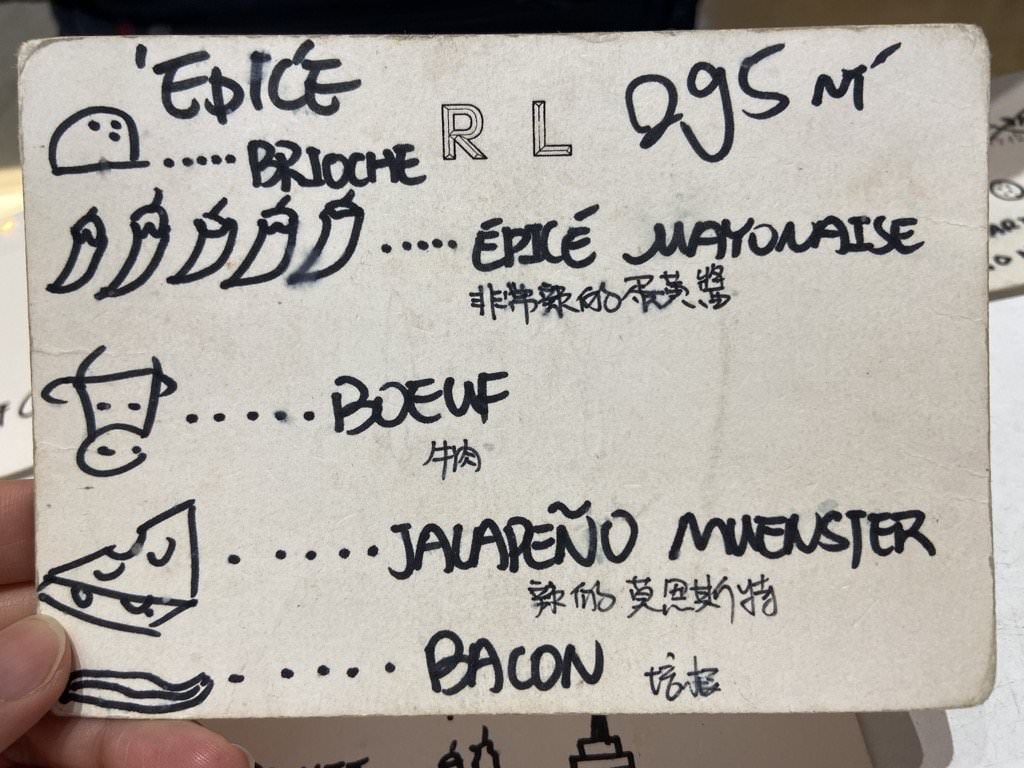 'EPICÉ
R L
295 NT
BRIOCHE
ÉPICÉ MAYONAISE
非常辣的蛋黃醬
BOEUF
牛肉
JALAPEÑO MUENSTER
辣的 莫恩斯特
BACON
培根